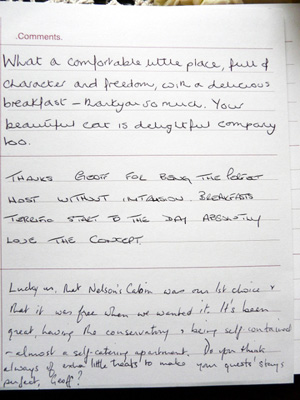 .Comments.
What a comfortable little place, full of
character and freedom, with a delicious
breakfast - thankyou so much. Your
beautiful cat is delightful company
too.
THANKS GEOFF FOR BEING THE PERFECT
HOST WITHOUT INTRUSION. BREAKFASTS
TERRIFIC START TO THE DAY ABSOLUTLY
LOVE THE CONCEPT.
Lucky us, that Nelson's Cabin was our 1st choice &
that it was free when we wanted it. It's been
great, having the conservatory & being self-contained
- almost a self-catering apartment. Do you think
always of extra little treats to make your guests' stays
perfect, Geoff?